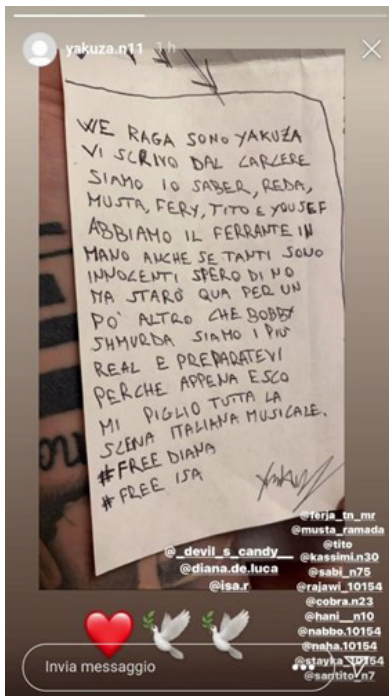 yakuza.n11 1 h
WE RAGA SONO YAKUZA
VI SCRIVO DAL CARCERE
SIAMO IO SABER, REDA,
MUSTA, FERY, TITO E YOUSEF
ABBIAMO IL FERRANTE IN
MANO ANCHE SE TANTI SONO
INNOCENTI SPERO DI NO
MA STARÒ QUA PER UN
PO' ALTRO CHE BOBBY
SHMURDA SIAMO I PIÙ
REAL E PREPARATEVI
PERCHE APPENA ESCO
MI PIGLIO TUTTA LA
SCENA ITALIANA MUSICALE.
#FREE DIANA
#FREE ISA
@ferja_tn_mr
@musta_ramada
@tito
@_devil_s_candy__ @kassimi.n30
@diana.de.luca @sabi_n75
@isa.r @rajawi_10154
@cobra.n23
@hani__n10
@nabbo.10154
@naha.10154
@stayka_10154
@santito_n7
Invia messaggio